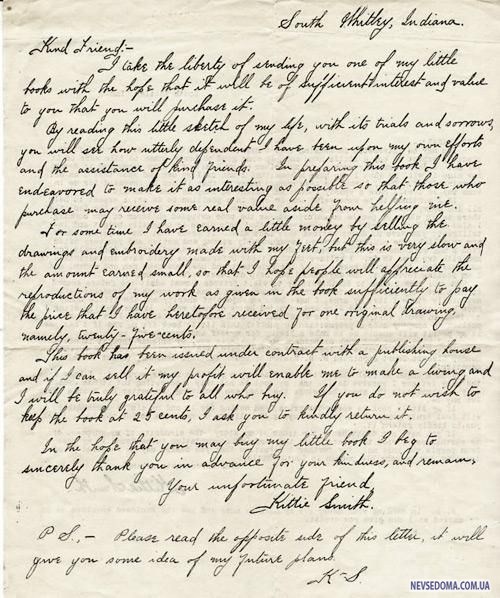 South Whitley, Indiana.
Kind Friend:-
I take the liberty of sending you one of my little
books with the hope that it will be of sufficient interest and value
to you that you will purchase it.
By reading this little sketch of my life, with its trials and sorrows,
you will see how utterly dependent I have been upon my own efforts
and the assistance of kind friends. In preparing this book I have
endeavored to make it as interesting as possible so that those who
purchase may receive some real value aside from helping me.
For some time I have earned a little money by selling the
drawings and embroidery made with my feet, but this is very slow and
the amount earned small, so that I hope people will appreciate the
reproductions of my work as given in the book sufficiently to pay
the price that I have heretofore received for one original drawing,
namely, twenty-five-cents.
This book has been issued under contract with a publishing house
and if I can sell it my profit will enable me to make a living and
I will be truly grateful to all who buy. If you do not wish to
keep the book at 25 cents, I ask you to kindly return it.
In the hope that you may buy my little book I beg to
sincerely thank you in advance for your kindness, and remain,
Your unfortunate friend,
Kittie Smith.
P.S.,- Please read the opposite side of this letter, it will
give you some idea of my future plans.
K-S.
NEVSEDOMA.COM.UA